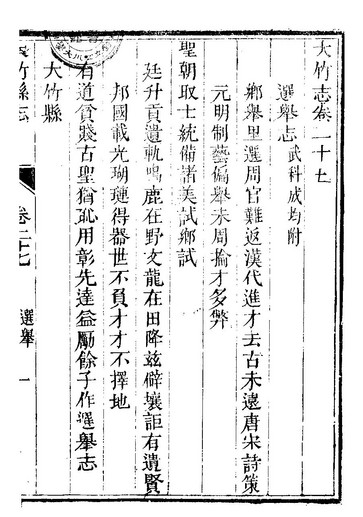 大竹志卷二十七
選舉志 武科成均附
鄉舉里選周官難返漢代進才去古未遠唐宋詩策
元明制藝偏舉未周掄才多弊
聖朝取士統備諸美試鄉試
廷升貢遺軌鹿在野文龍在田降茲僻壤詎有遺賢
邦國載光瑚璉得器世不負才才不擇地
有道貧賤古聖猶恥用彰先達益勵餘子作選舉志
大竹縣
竹縣志 卷二十七 選舉 一